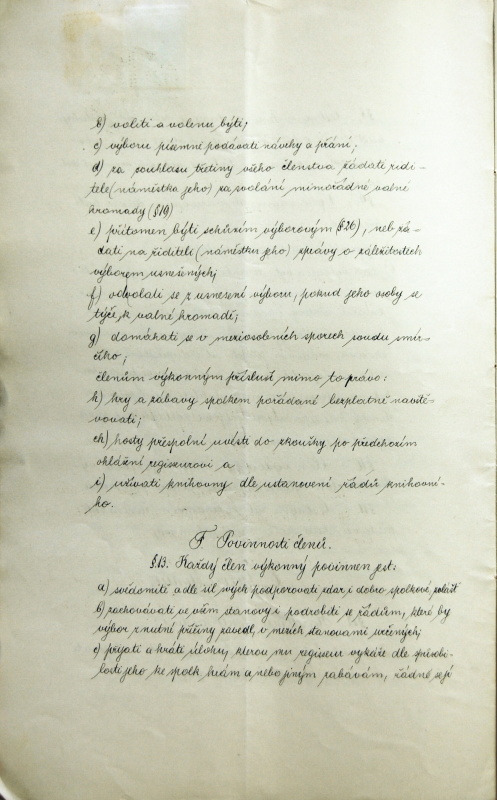 b) voliti a volenu býti;
c) výboru písemné podávati návrhy a přání;
d) za souhlasu třetiny všeho členstva žádati ředi-
tele (náměstka jeho) za svolání mimořádné valné
hromady (§19)
e) přítomen býti schůzím výborovým (§26), neb žá-
dati na řediteli (náměstku jeho) zprávy o záležitostech
výborem usnešených;
f) odvolati se z usnesení výboru, pokud jeho osoby se
týče, k valné hromadě;
g) domáhati se v meziosobních sporech soudu smír-
čího;
členům výkonným přísluší mimo to právo:
h) hry a zábavy spolkem pořádané bezplatně navště-
vovati;
ch) hosty přespolní uvésti do zkoušky po předchozím
ohlášení regisseurovi a
i) užívati knihovny dle ustanovení řádů knihovní-
ho.
F. Povinnosti členů.
§13. Každý člen výkonný povinnen jest:
a) svědomitě a dle sil svých podporovati zdar i dobro spolkové, zvlášť
b) zachovávati ve všem stanovy i podrobiti se řádům, které by
výbor z nutné příčiny zavedl, v mezích stanovami určených;
c) přijati a hráti úlohy, kterou mu regisseur vykáže dle způsobi-
losti jeho ke spolk. hrám a nebo jiným zábavám, žádné se jí